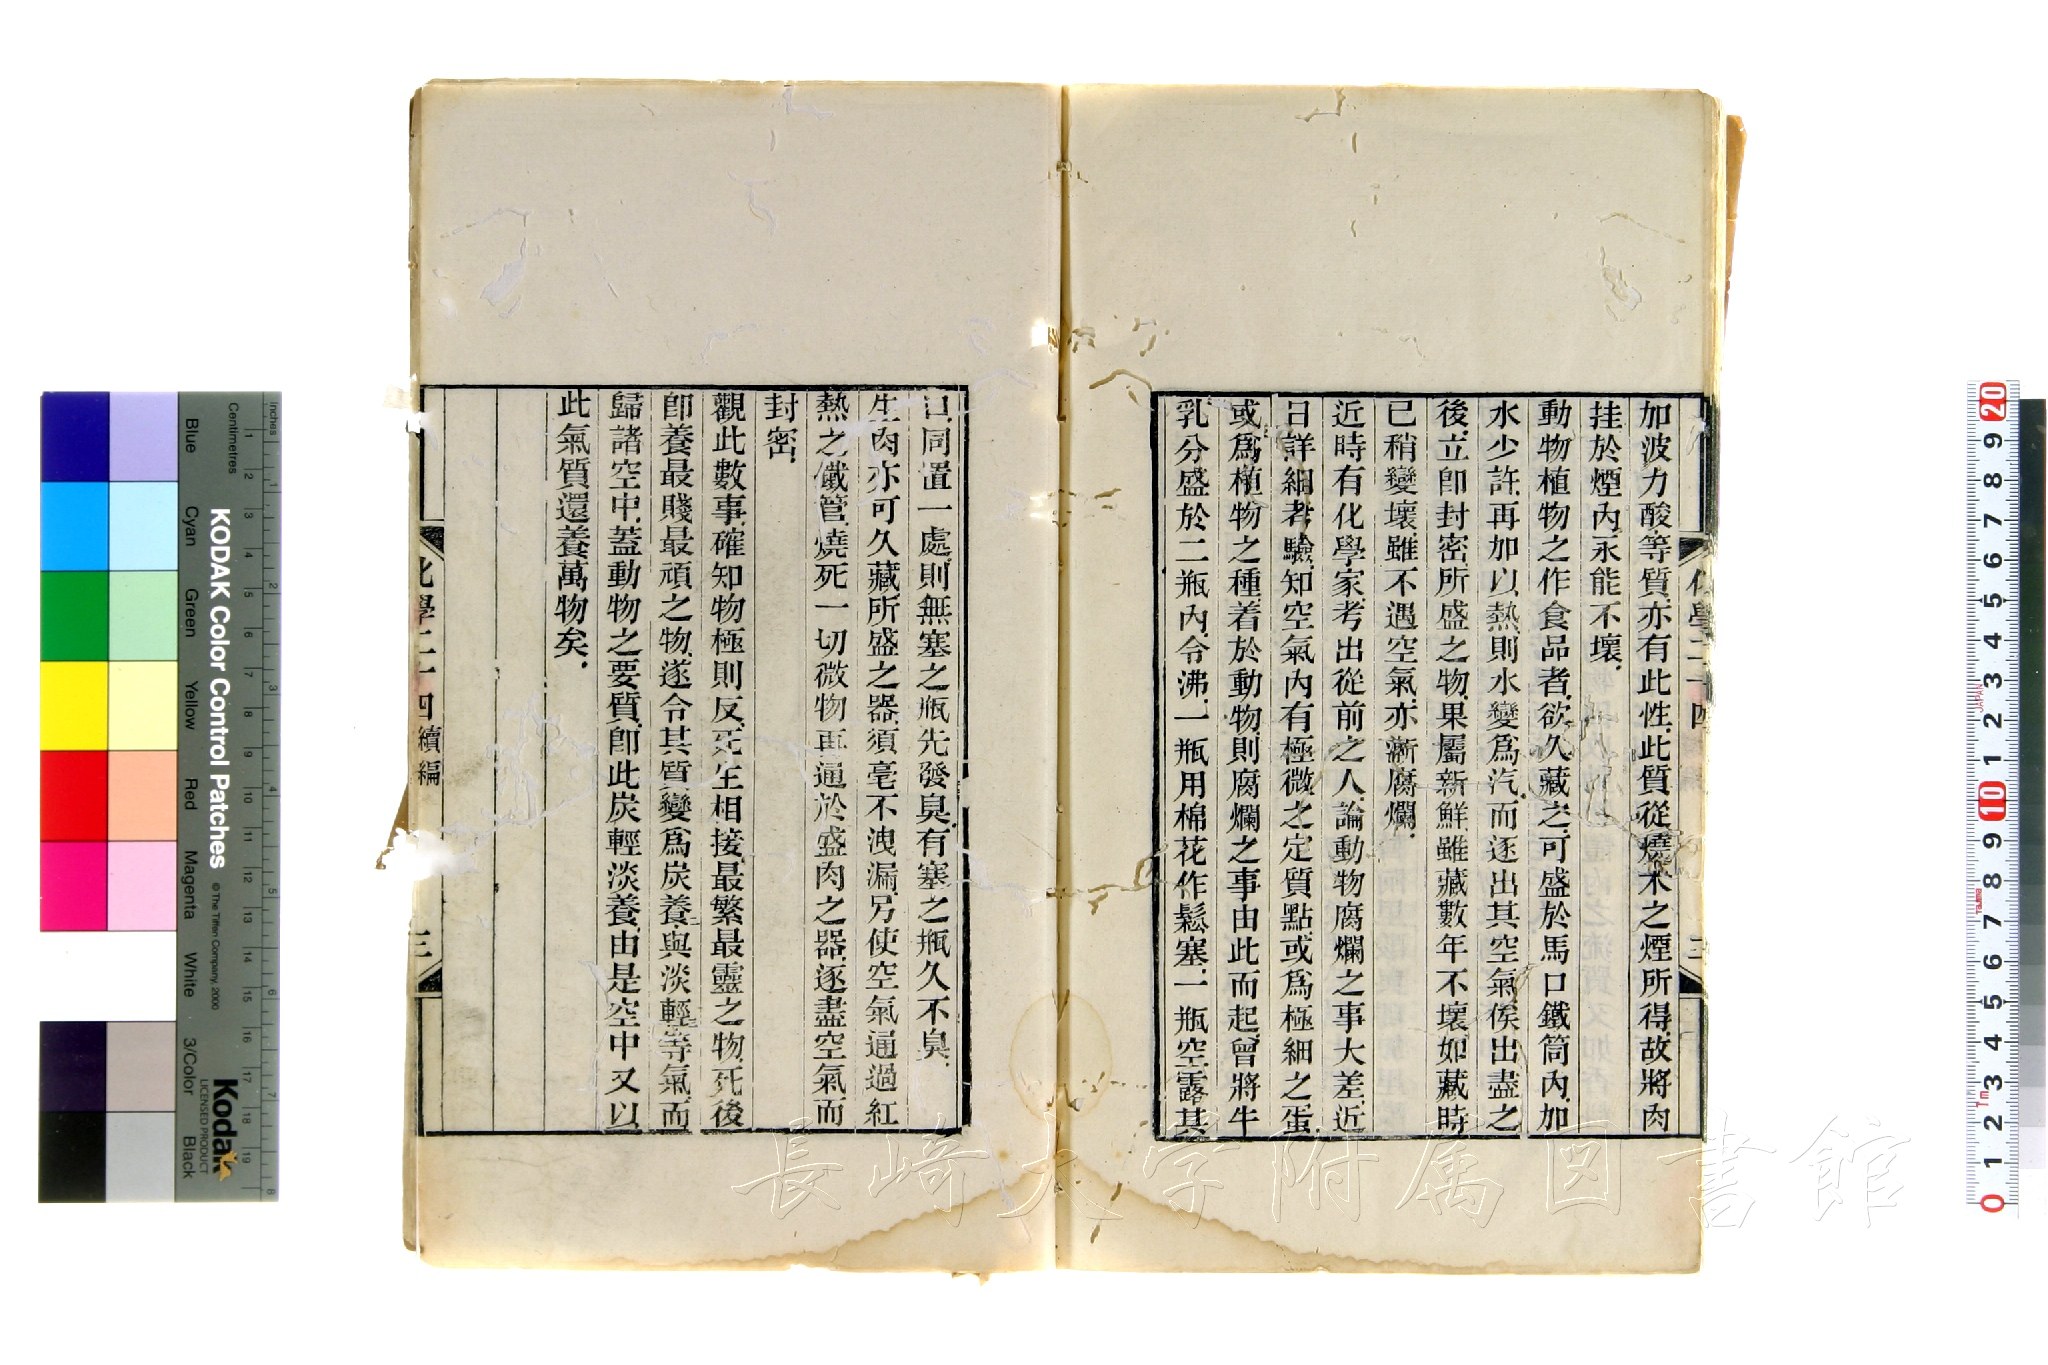 加波力酸等質亦有此性此質從燒木之煙所得故將肉
挂於煙內永能不壞
動物植物之作食品者欲久藏之可盛於馬口鐵筒內加
水少許再加以熱則水變爲汽而逐出其空氣俟出盡之
後立卽封密所盛之物果屬新鮮雖藏數年不壞如藏時
已稍變壞雖不遇空氣亦漸腐爛
近時有化學家考出從前之人論動物腐爛之事大差近
日詳細考驗知空氣內有極微之定質點或爲極細之蛋
或爲植物之種着於動物則腐爛之事由此而起曾將牛
乳分盛於二瓶內令沸一瓶用棉花作鬆塞一瓶空露其
口同置一處則無塞之瓶先發臭有塞之瓶久不臭
生肉亦可久藏所盛之器須毫不洩漏另使空氣通過紅
熱之儀管燒死一切微物再通於盛肉之器逐盡空氣而
封密
觀此數事確知物極則反死生相接最繁最靈之物死後
卽養最賤最頑之物遂令其質變爲炭養與淡輕等氣而
歸諸空中蓋動物之要質卽此炭輕淡養由是空中又以
此氣質還養萬物矣
化學二十四
三
化學二十四續編
三
長崎大学附属図書館
KODAK Color Control Patches
© The Tiffen Company, 2000
Kodak
LICENSED PRODUCT
Inches
Centimetres
Blue
Cyan
Green
Yellow
Red
Magenta
White
3/Color
Black
JAPAN
Tajima